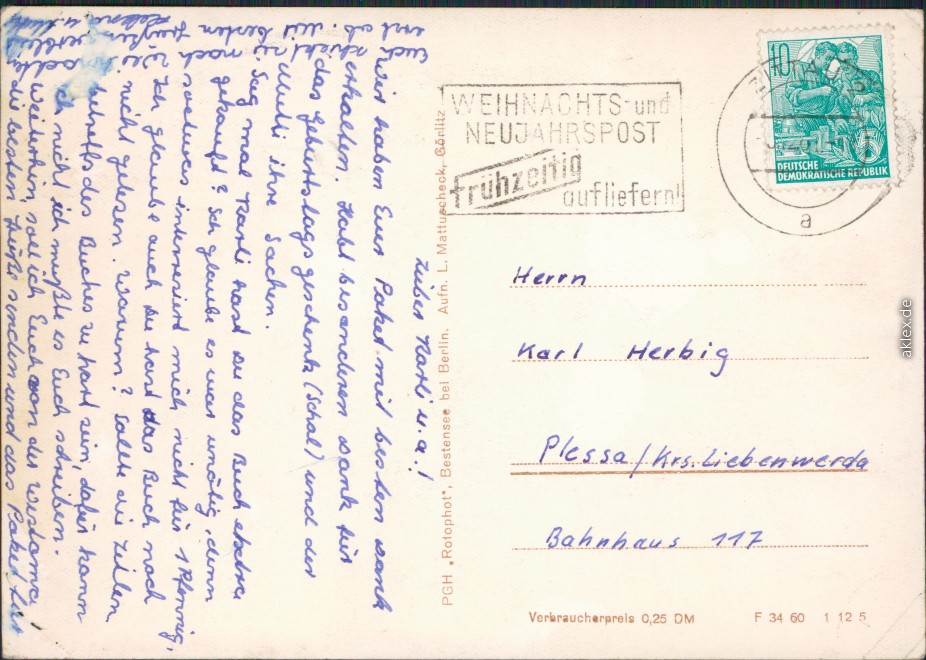 Lieber Karli u. a.!
Wir haben Euer Paket mit bestem Dank
erhalten. Habt besonderen Dank für
das Geburtstagsgeschenk (Schal) und der
Mutti ihre Sachen.
Sag mal Karli hast Du das Buch extra
gekauft? Ich glaube es war unnötig, denn
sowas interessiert mich nicht für 1 Pfennig.
Ich glaube auch Du hast das Buch noch
nicht gelesen. Warum? Sollte die Zeilen
betreffs des Buches zu hart sein, dafür kann
ich nicht, ich mußte es Euch schreiben.
Weiterhin soll ich Euch von der Westoma
die besten Grüße senden und das Paket für
Euch schickt sie nach
erst ab. Mit besten Grüßen
WEIHNACHTS- und
NEUJAHRSPOST
frühzeitig
aufliefern!
10
DEUTSCHE
DEMOKRATISCHE REPUBLIK
a
Herrn
Karl Herbig
Plessa/Krs. Liebenwerda
Bahnhaus 117
PGH „Rotophot", Bestensee bei Berlin. Aufn. L. Mattuscheck, Görlitz
Verbraucherpreis 0,25 DM F 34 60 1 12 5
aklex.de